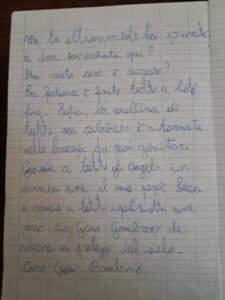 Ma tu ultimamente hai provato
a dare un'occhiata qui?
Hai visto cosa è successo?
Per fortuna è finito tutto a lieto
fine. Sofia, la sorellina di
tutti noi calabresi è ritornata
nelle braccia dei suoi genitori
Grazie a tutti gli Angeli in
divisa come il mio papà Luca
e grazie a tutti i poliziotti come
mio zio Gino Gambroso che
adesso mi protegge dal cielo.
Caro Gesù Bambino